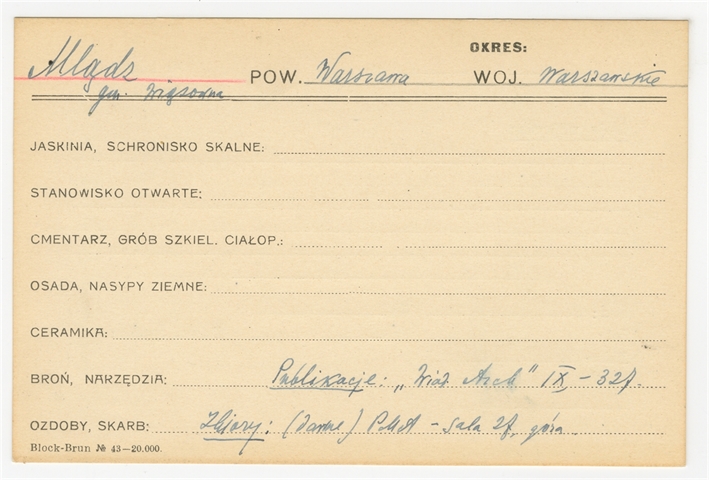 OKRES:
Mlądz POW. Warszawa WOJ. Warszawskie
gm. Wiązowna
JASKINIA, SCHROŃISKO SKALNE:
STANOWISKO OTWARTE:
CMENTARZ, GRÓB SZKIEL. CIAŁOP.:
OSADA, NASYPY ZIEMNE:
CERAMIKA:
BROŃ, NARZĘDZIA: Publikacje: „Wiad. Arch" IX, – 327.
OZDOBY, SKARB: Zbiory: (dawne) PMA – Sala 2f, góra
Block-Brun № 43–20.000.